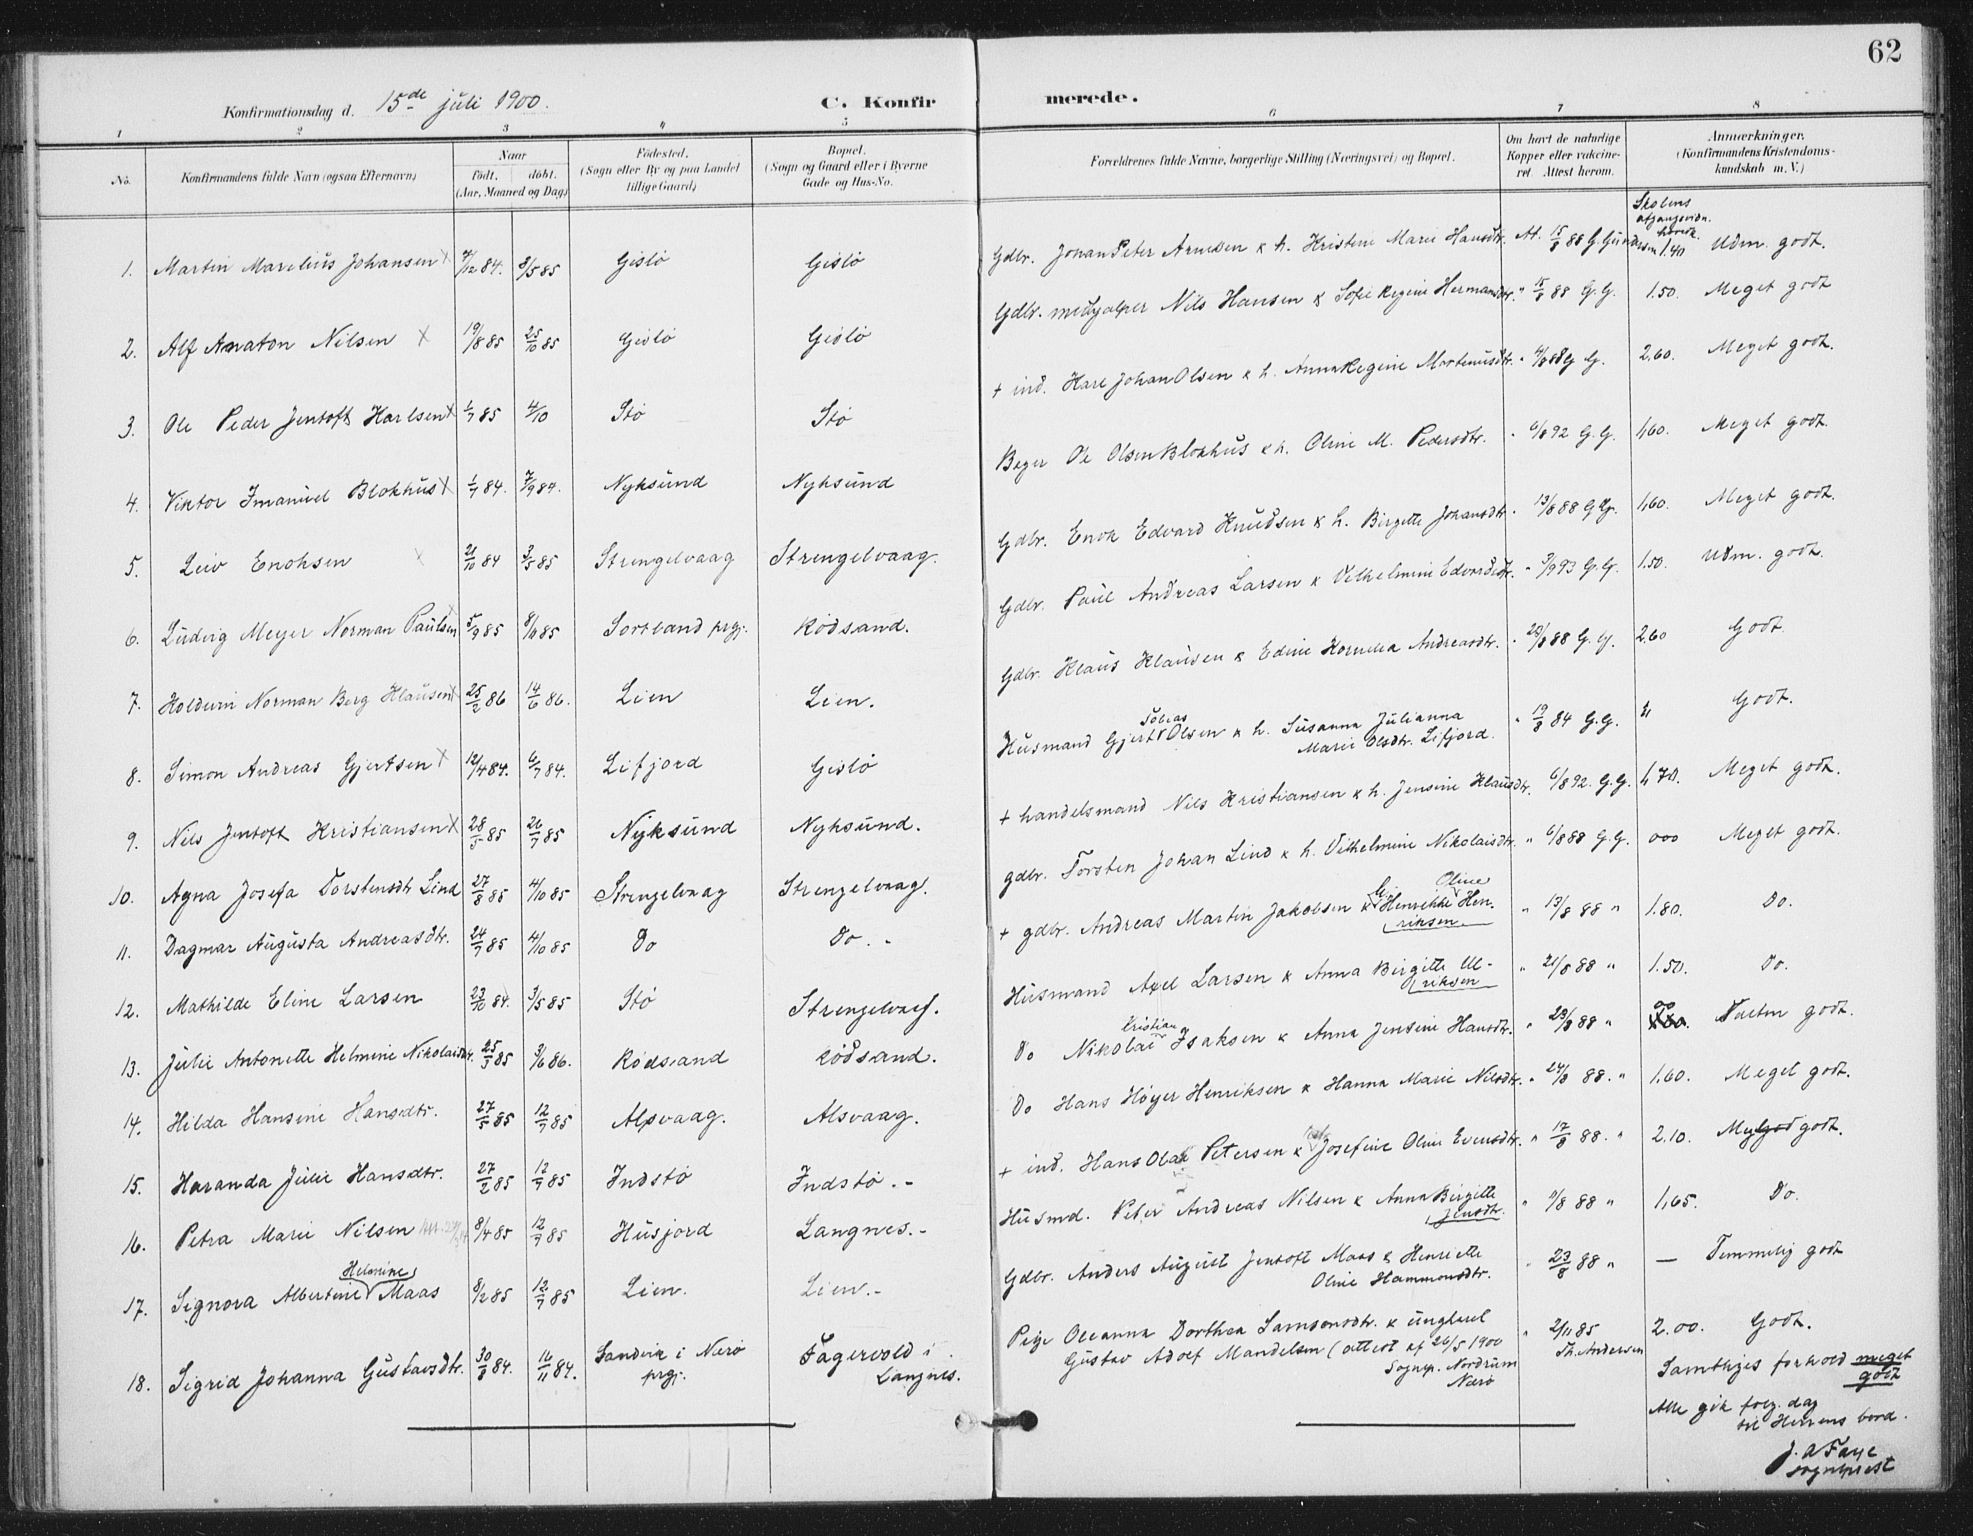 62
Konfirmationsdag d. 15de juli 1900.
C. Konfirmerede.
1 2 3 4 5 6 7 8
No.
Konfirmandens fulde Navn (ogsaa Efternavn)
Naar
født. døbt.
(Aar, Maaned og Dag)
Födested.
(Sogn eller By og paa Landet
tillige Gaard)
Bopæl.
(Sogn og Gaard eller i Byerne
Gade og Hus-No.
Forældrenes fulde Navne, borgerlige Stilling (Næringsvei) og Bopæl.
Om havt de naturlige
Kopper eller vakcine-
ret. Attest herom.
Anmærkninger.
(Konfirmandens Kristendoms-
kundskab m. V.)
Skolens
afgangsvidn.
1. Martin Marelius Johansen x 8/5 85 Gislö Gislö Gdbr. Johan Peter Arntsen & h. Kristine Marie Hansdtr. At. 15/8 88 G. Gundersen 1.40 Udm. godt.
2. Alf Anaton Nilsen x 19/8 85 25/10 85 Gislö Gislö Gdbr. medhjælper Nils Hansen & Sofie Regine Hermansdtr. " 15/8 88 G. G. 1.50. Meget godt
3. Ole Peder Jentoft Harlsen x 1/7 85 4/10 Stö Stö + ind. Harl Johan Olsen & h. Anna Regine Mortensdtr. G. 2.60. Meget godt.
4. Viktor Imanuel Blokhus x 1/7 84. 7/9 84. Nyksund Nyksund Ole Olsen Blokhus & h. Oline M. Pedersdtr. " 6/8 92 G. G. 1,60. Meget godt.
5. Leiv Enoksen x 21/10 84 3/5 85 Strengelvaag Strengelvaag. Gdbr. Enok Edvard Knudsen & h. Birgitte Johansdtr. 13/8 88 G. G. 1,60. Meget godt.
6. Ludvig Meyer Norman Paulsen x 5/9 85 8/11 85 Sortland prgj. Rödsand. Gdbr. Paul Andreas Larsen & Vilhelmine Edvardsdtr. " 3/9 93 G. G. 1.50. Udm. godt.
7. Holdum Norman Berg Klausen x 25/2 86 14/6 86. Lien Lien. Gdbr. Klaus Klausen & Edine Kornelia Andreasdtr. " 23/8 88 G. G. 2.60 Godt.
8. Simon Andreas Gjertsen x 12/4 84. 6/7 84. Lifjord Gislö Husmand Gjert Tobias Olsen & h. Susanna Julianna
Marie Olsdtr. Lifjord. " 19/8 84 G. G. " Godt.
9. Nils Jentoft Kristiansen x 28/5 85 26/7 85 Nyksund Nyksund. + handelsmand Nils Kristiansen & h. Jensine Klausdtr. 6/8 92. G. G. 1,70. Meget godt.
10. Agna Josefa Torstensdtr Lind 27/8 85 4/10 85 Strengelvaag Strengelvaag. gdbr. Torsten Johan Lind & h. Vilhelmine Nikolaisdtr. " 6/8 88 G. G. 000 Meget godt.
11. Dagmar Augusta Andreasdtr. 24/7 85 4/10 85 Do Do. - + gdbr. Andreas Martin Jakobsen & h. Henrikke Oline Hen-
riksen " 13/8 88 " 1.80. Do.
12. Mathilde Eline Larsen 23/10 84. 3/5 85 Stö Strengelvaag. Husmand Axel Larsen & Anna Birgitte Ul-
riksen " 21/8 88 " 1.50. Do.
13. Julie Antonette Helmine Nikolaisdtr. 25/5 85 3/6 86. Rödsand Rödsand. Do Nikolai Kristian Isaksen & Anna Jensine Hansdtr. " 23/8 88 " 00 Noksaa godt.
14. Hilda Hansine Hansdtr. 27/5 85 12/7 85 Alsvaag. Alsvaag. Do Hans Höyer Henriksen & Hanna Marie Nilsdtr. " 24/8 88. " 1.60. Meget godt.
15. Haranda Julie Hansdtr. 27/2 85 12/7 85 Indstö Indstö. - + ind. Hans Olai Petersen & Josefine Oline Evensdtr. " 17/8 88. " 2.10. godt.
16. Petra Marie Nilsen 8/4 85 12/7 85 Husjord Langnes. - Husmd. Peter Andreas Nilsen & Anna Birgitte
Jensdtr. 88 " 1,65. Do.
17. Signora Albertine Helmine Maas 8/2 85 12/7 85 Lien. Lien. - Gdbr. Anders August Jentoft Maas & Henriette
Oline Hammonsdtr. " 23/8 88 " — Temmelig godt
18. Sigrid Johanna Gustavsdtr. 30/8 84. 16/11 84. Sandvik i Nærö
prgj. Fagervold i
Langnes. Pige Oleanna Dorthea Samsonsdtr. & ungkarl
Gustav Adolf Mandelsen (attest af 26/5 1900
Sognep. Nordrum
Nærö " 2/11 85
Th. Andersen 2.00. Godt.
Samtliges forhold meget
godt
Alle gik følg. dag
til Herrens bord.
J. A Faye
sogneprest